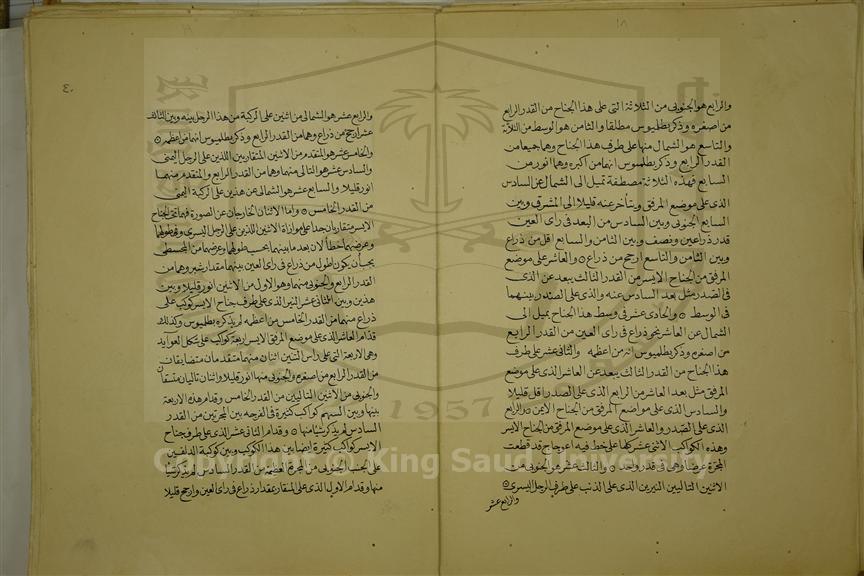 ١٨
والرابع هو الجنوبى من الثلاثة التى على هذا الجناح من القدر الرابع
من اصغره وذكر بطلميوس مطلقا والثامن هو الوسط من الثلاثة
والتاسع هو الشمال منها على طرف هذا الجناح وهما جميعا من
القدر الرابع وذكر بطلميوس انهما من اكبره وهما انور من
السابع فهذه الثلاثة مصطفة تميل الى الشمال عن السادس
الذى على موضع المرفق ويتأخر عنه قليلا الى المشرق وبين
السابع الجنوبى وبين السادس من البعد فى راى العين
قدر ذراعين ونصف وبين الثامن والسابع اقل من ذراع
وبين الثامن والتاسع ارجح من ذراع والعاشر على موضع
المرفق من الجناح الايسر من القدر الثالث يبعد عن الذى
فى الصدر مثل بعد السادس عنه والذى على الصدر بينهما
فى الوسط والحادى عشر فى وسط هذا الجناح يميل الى
الشمال عن العاشر نحو ذراع فى راى العين من القدر الرابع
من اصغره وذكر بطلميوس انه من اعظمه والثانى عشر على طرف
هذا الجناح من القدر الثالث يبعد عن العاشر الذى على موضع
المرفق مثل بعد العاشر من الرابع الذى على الصدر اقل قليلا
والسادس الذى على مواضع المرفق من الجناح الايمن والرابع
الذى على الصدر والعاشر الذى على موضع المرفق من الجناح الايسر
وهذه الكواكب الاثنى عشر كلها على خط فيه اعوجاج قد قطعت
المجرة عرضا وهى فى قدر واحد والثالث عشر هو الجنوبى من
الاثنين التاليين النيرين الذى على الذنب على طرف الرجل اليسرى
والرابع عشر
٤٠
والرابع عشر هو الشمالى من اثنين على الركبة من هذا الرجل بينه وبين الثالث
عشر ارجح من ذراع وهما من القدر الرابع وذكر بطلميوس انهما من اعظمه
والخامس عشر هو المتقدم من الاثنين المتقاربين اللذين على الرجل اليمنى
والسادس عشر هو التالى منهما وهما من القدر الرابع والمتقدم منهما
انور قليلا والسابع عشر هو الشمالى عن هذين على الركبة اليمنى
من القدر الخامس واما الاثنان الخارجان عن الصورة فهما تحت الجناح
الايسر متقاربان جدا على موازاة الاثنين اللذين على الرجل اليسرى وفى طولهما
وعرضهما خطأ لان بعد ما بينهما بحسب طولهما وعرضهما من المجسطى
يجب ان يكون اطول من ذراع فى راى العين بينهما مقدار شبر وهما من
القدر الرابع والجنوبى منهما وهو الاول من الاثنين انور قليلا وبين
هذين وبين الثانى عشر النير الذى على طرف جناح الايسر كوكب على
ذراع منهما من القدر الخامس من اعظمه لم يذكره بطلميوس وكذلك
قدام العاشر الذى على موضع المرفق الايسر اربعة كواكب على شكل العوايد
وهى الاربعة التى على راس التنين اثنان منهما متقدمان متضايقان
من القدر الرابع من اصغره والجنوبى منها انور قليلا واثنان تاليان متسقان
والجنوبى من الاثنين التاليين من القدر الخامس وقدام هذه الاربعة
بينها وبين السهم كواكب كثيرة فى الفرجة بين المجرتين من القدر
السادس لم يذكر شيئا منها وقدام الثانى عشر الذى على طرف جناح
الايسر كواكب كثيرة ايضا بين هذا الكوكب وبين كوكبة الدلفين
على الجنب الجنوبى من المجرة العظمة من القدر السادس لم يذكر شيئا
منها وقدام الاول الذى على المنقار بمقدار ذراع فى راى العين وارجح قليلا
1957
Copyright © King Saud University